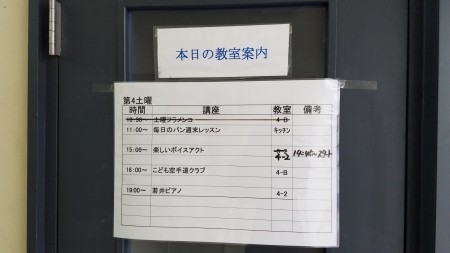 本日の教室案内
第4土曜
時間 講座 教室 備考
10:30~ 土曜フラメンコ 4-B
11:00~ 毎日のパン週末レッスン キッチン
15:00~ 楽しいボイスアクト 4-2
16:00~ こども空手道クラブ 4-B
19:00~ 若井ピアノ 4-2